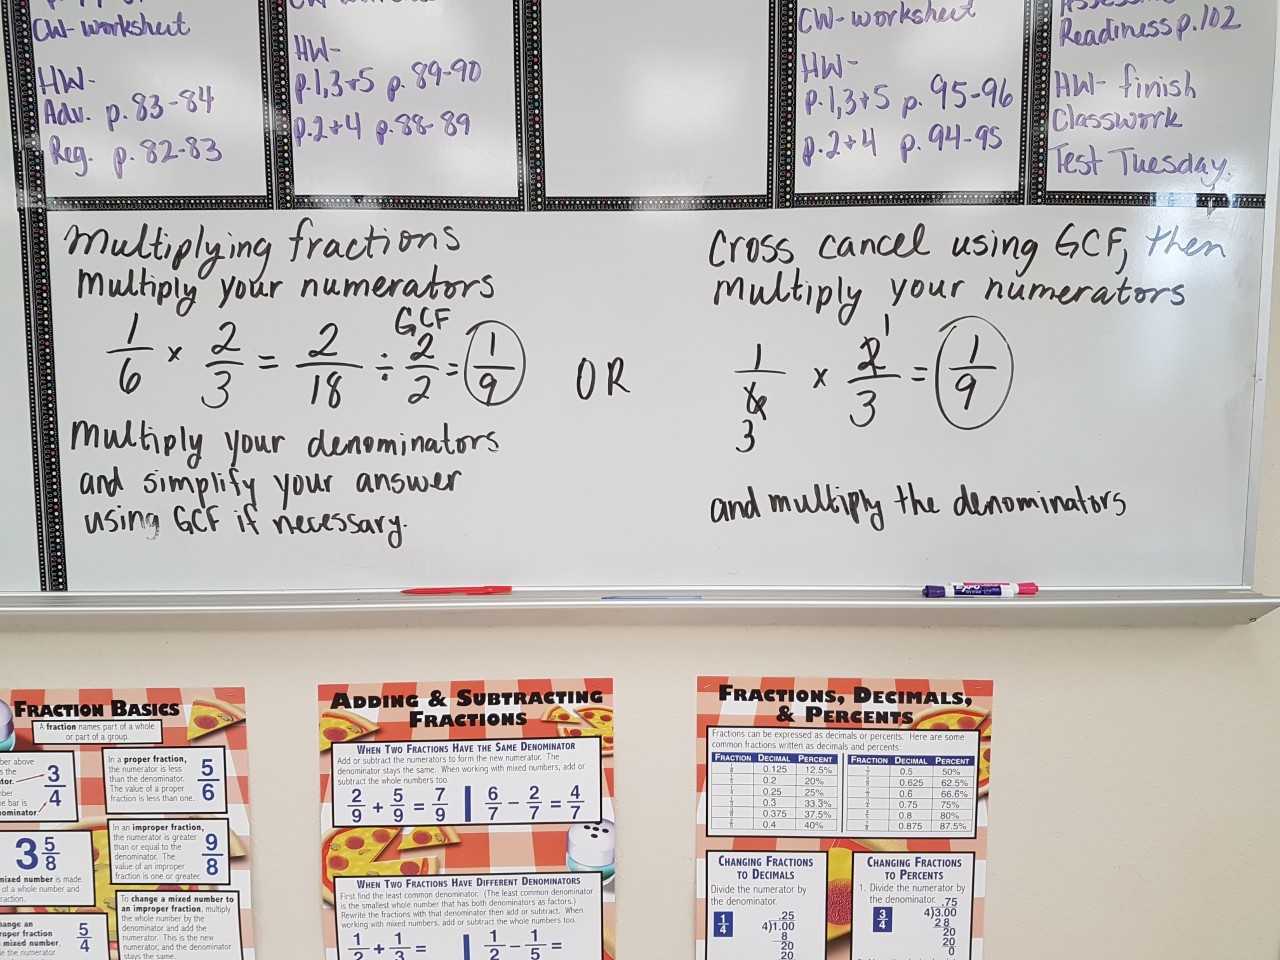 CW-worksheet
HW-
Adv. p. 83-84
Reg. p. 82-83
HW-
p.1,3+5 p. 89-90
p.2+4 p. 88-89
CW-worksheet
HW-
p.1,3+5 p. 95-96
p.2+4 p. 94-95
Readiness p.102
HW- finish
Classwork
Test Tuesday.
Multiplying fractions
Multiply your numerators
GCF
1/6 × 2/3 = 2/18 ÷ 2/2 = 1/9
Multiply your denominators
and simplify your answer
using GCF if necessary.
OR
Cross cancel using GCF, then
Multiply your numerators
1
1/6 × 2/3 = 1/9
3
and multiply the denominators
EXPO
FRACTION BASICS
A fraction names part of a whole
or part of a group.
3/4
In a proper fraction,
the numerator is less
than the denominator.
The value of a proper
fraction is less than one.
5/6
3 5/8
In an improper fraction,
the numerator is greater
than or equal to the
denominator. The
value of an improper
fraction is one or greater.
9/8
mixed number is made
of a whole number and
5/4
mixed number
To change a mixed number to
an improper fraction, multiply
the whole number by the
denominator and add the
numerator. This is the new
numerator, and the denominator
stays the same.
ADDING & SUBTRACTING
FRACTIONS
WHEN TWO FRACTIONS HAVE THE SAME DENOMINATOR
Add or subtract the numerators to form the new numerator. The
denominator stays the same. When working with mixed numbers, add or
subtract the whole numbers too.
2/9 + 5/9 = 7/9 | 6/7 − 2/7 = 4/7
WHEN TWO FRACTIONS HAVE DIFFERENT DENOMINATORS
First find the least common denominator. (The least common denominator
is the smallest whole number that has both denominators as factors.)
Rewrite the fractions with that denominator then add or subtract. When
working with mixed numbers, add or subtract the whole numbers too.
1/2 + 1/3 = | 1/2 − 1/5 =
FRACTIONS, DECIMALS,
& PERCENTS
Fractions can be expressed as decimals or percents. Here are some
common fractions written as decimals and percents:
FRACTION DECIMAL PERCENT
0.125 12.5%
0.2 20%
0.25 25%
0.3 33.3%
0.375 37.5%
0.4 40%
FRACTION DECIMAL PERCENT
0.5 50%
0.625 62.5%
0.6 66.6%
0.75 75%
0.8 80%
0.875 87.5%
CHANGING FRACTIONS
TO DECIMALS
Divide the numerator by
the denominator.
1/4
.25
4)1.00
8
20
20
CHANGING FRACTIONS
TO PERCENTS
1. Divide the numerator by
the denominator.
3/4
.75
4)3.00
28
20
20
0